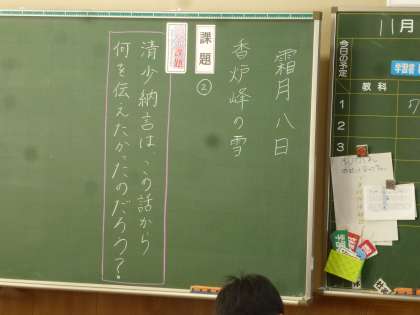 霜月八日
香炉峰の雪
課題
②
課題
清少納言は、この話から
何を伝えたかったのだろう？
11月
今日の予定
教科
1
2
3
学習書